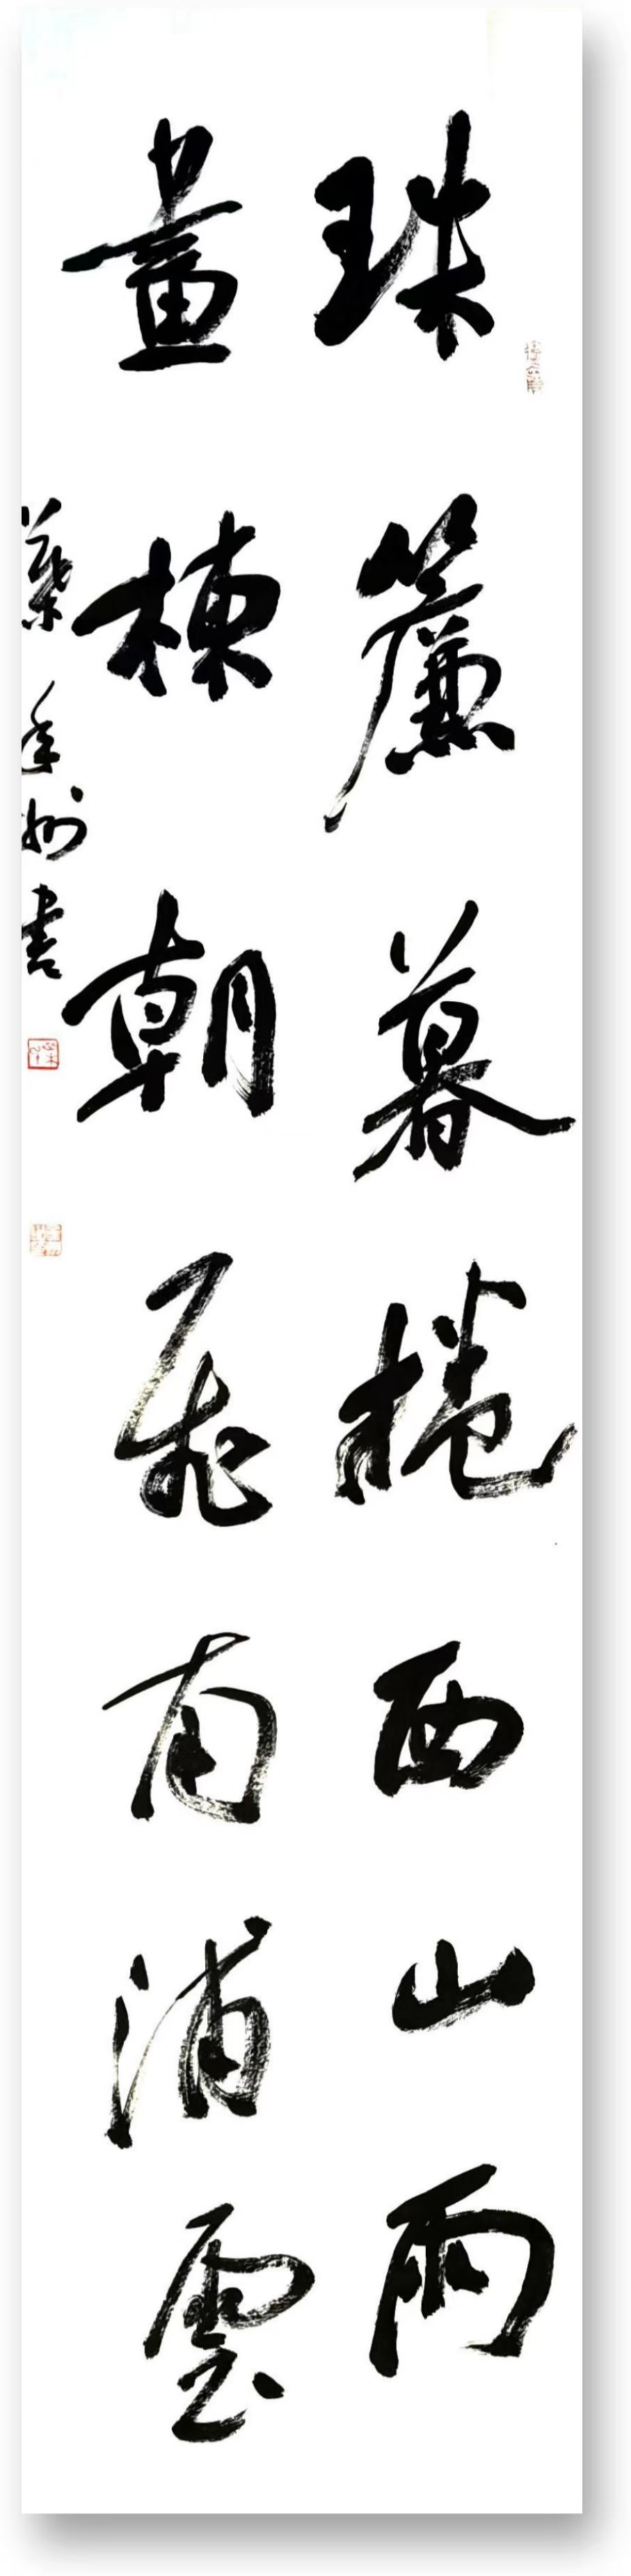 珠簾暮捲西山雨
畫棟朝飛南浦雲
葉年州書